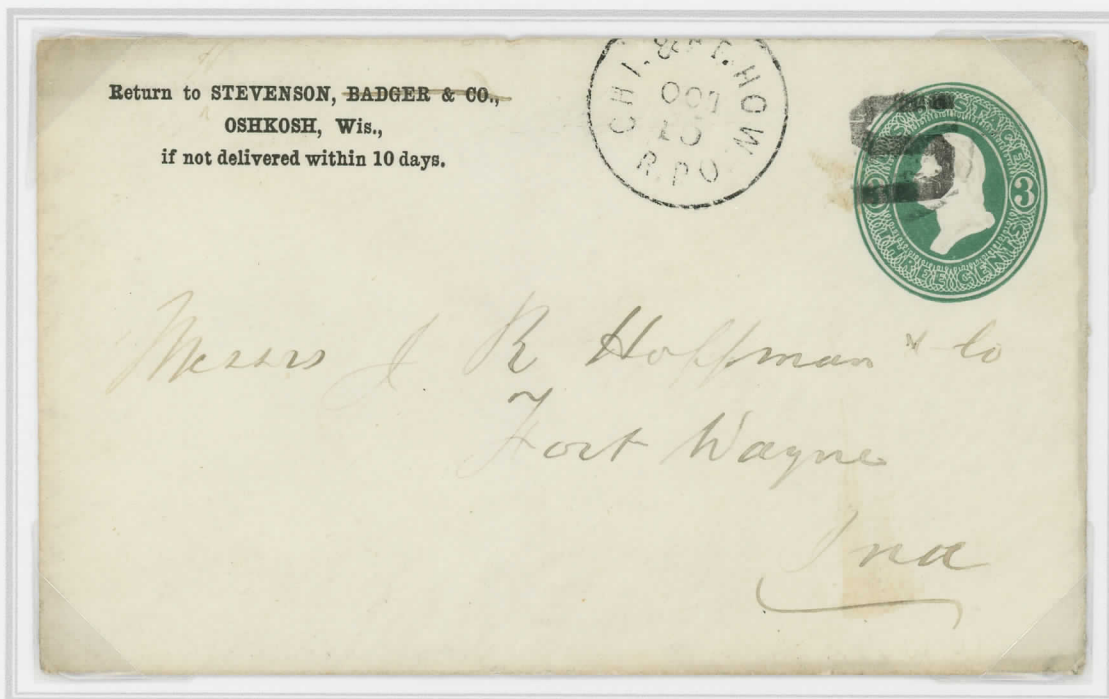 Return to STEVENSON, BADGER & CO.,
OSHKOSH, Wis.,
if not delivered within 10 days.
CHI. & FT. HOW
OCT
10
R.P.O.
THREE CENTS
3
Messrs J R Hoffman & Co
Fort Wayne
Ind